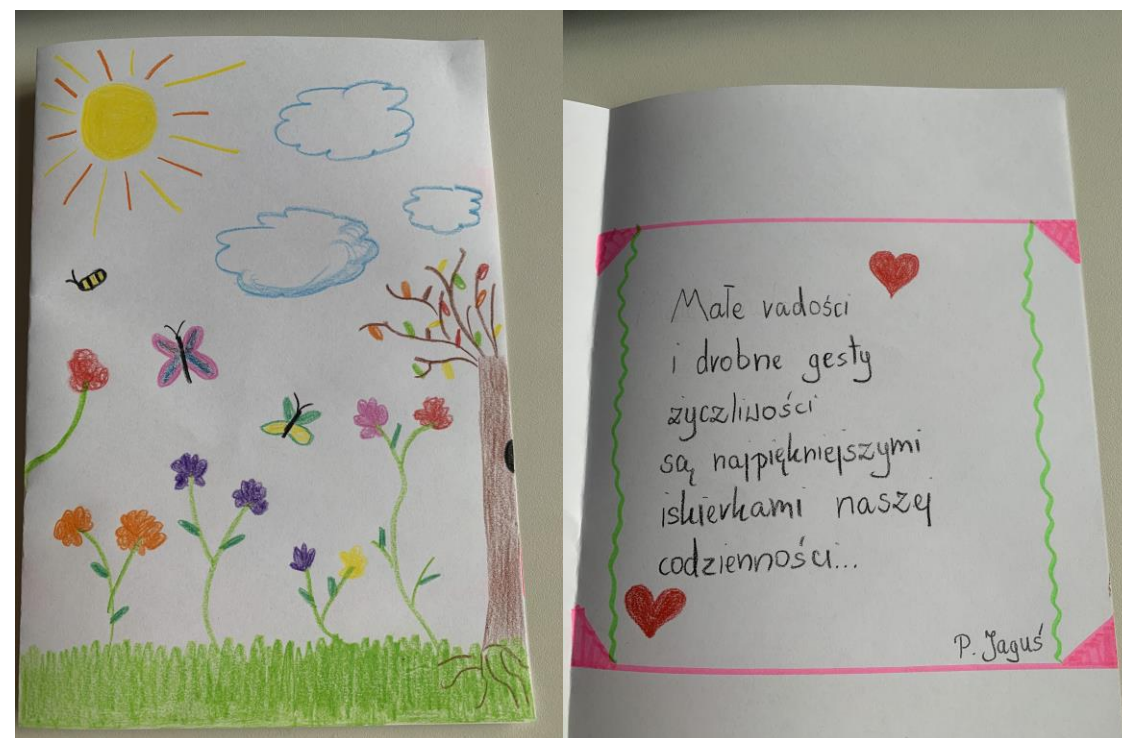 Małe radości
i drobne gesty
życzliwości
są najpiękniejszymi
iskierkami naszej
codzienności...
P. Jaguś